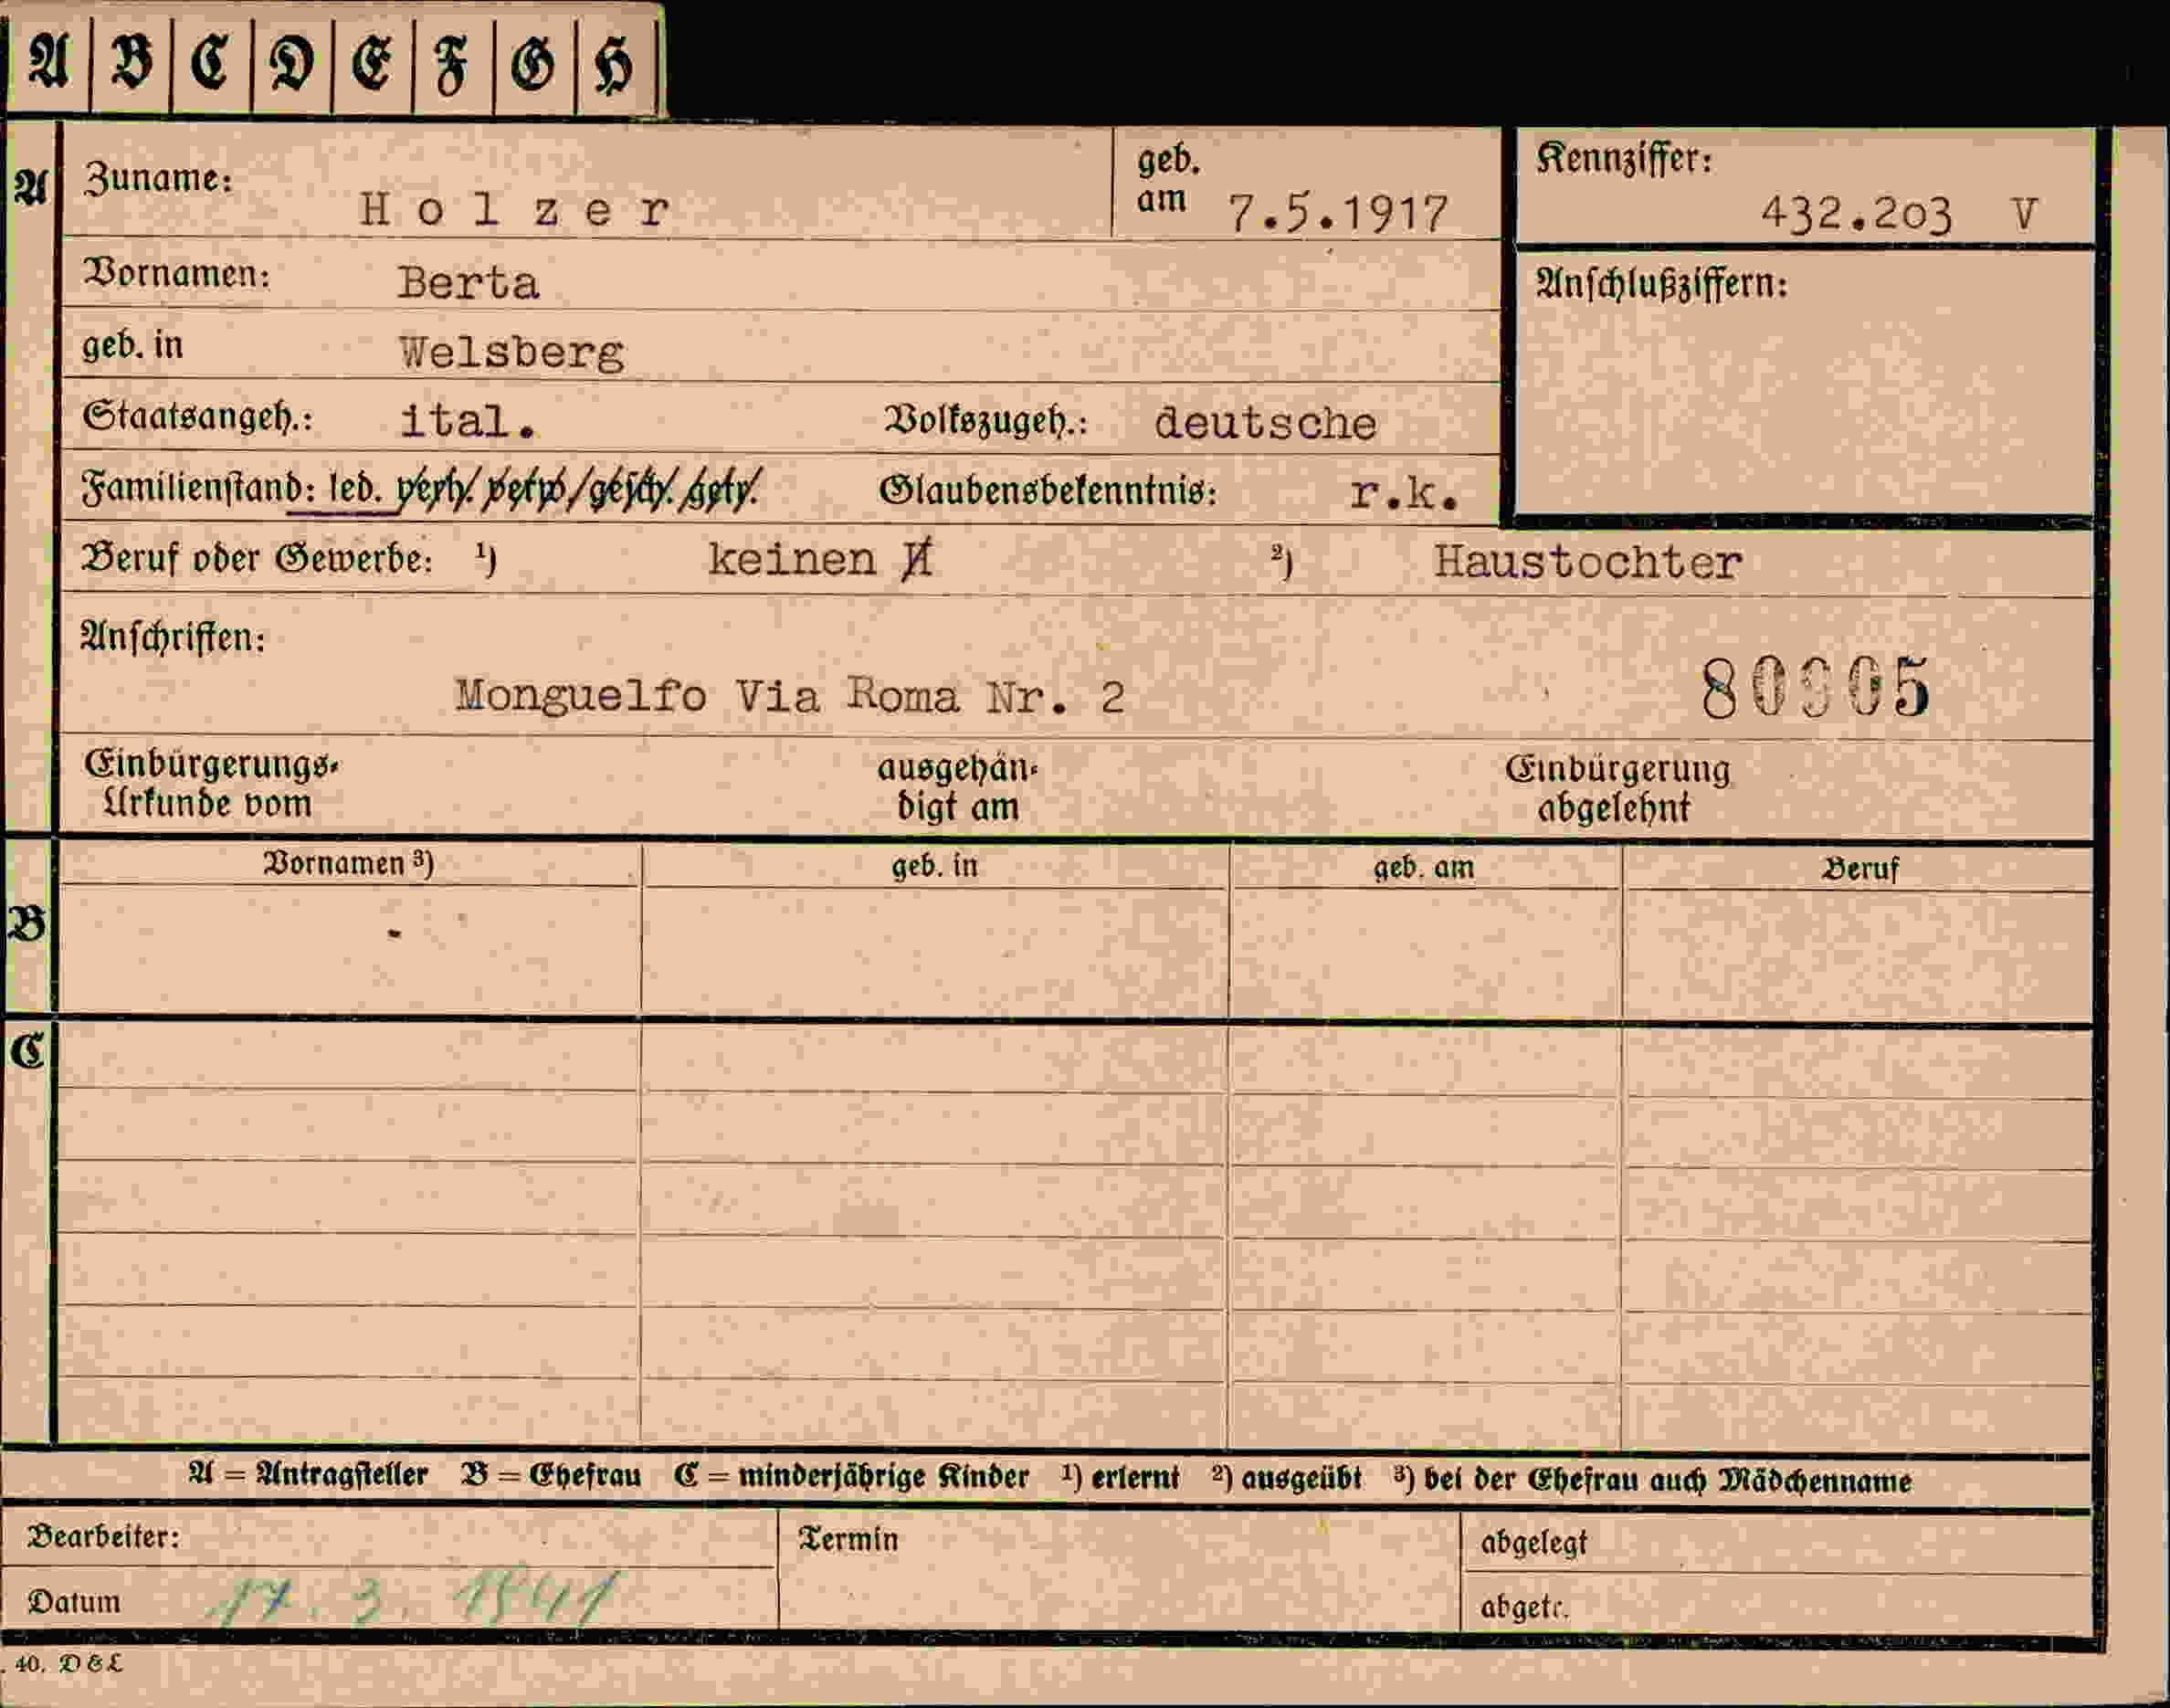 A B C D E F G H
A Zuname: Holzer geb. am 7.5.1917 Kennziffer: 432.203 V
Vornamen: Berta Anschlußziffern:
geb. in Welsberg
Staatsangeh.: ital. Volkszugeh.: deutsche
Familienstand: led. verh. verw. gesch. getr. Glaubensbekenntnis: r.k.
Beruf oder Gewerbe: ¹) keinen ²) Haustochter
Anschriften:
Monguelfo Via Roma Nr. 2
Einbürgerungs- ausgehän- Einbürgerung
Urkunde vom digt am abgelehnt
Vornamen ³) geb. in geb. am Beruf
B -
C
A = Antragsteller B = Ehefrau C = minderjährige Kinder ¹) erlernt ²) ausgeübt ³) bei der Ehefrau auch Mädchenname
Bearbeiter: Termin abgelegt
Datum 17. 3. 1941 abgetr.
. 40. D&L